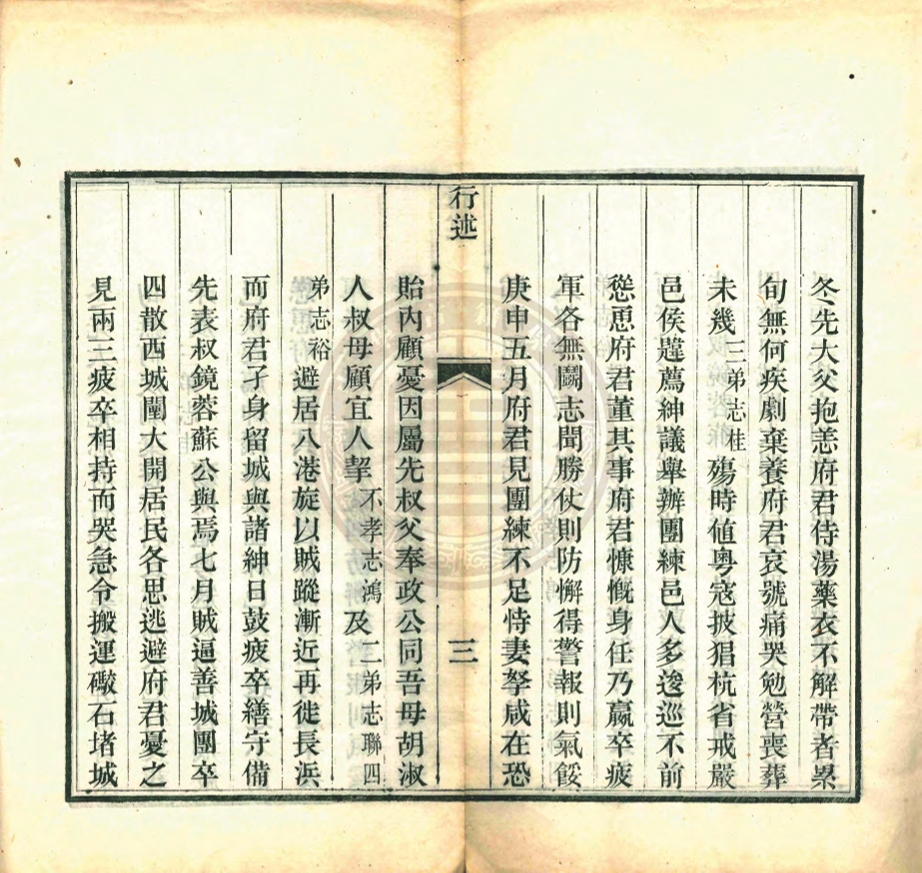 冬先大父抱恙府君侍湯藥衣不解帶者累
旬無何疾劇棄養府君哀號痛哭勉營喪葬
未幾三弟志桂殤時值粵寇披猖杭省戒嚴
邑侯躄薦紳議舉辦團練邑人多逡巡不前
慫恿府君董其事府君慷慨身任乃羸卒疲
軍各無鬭志聞勝仗則防懈得警報則氣餒
庚申五月府君見團練不足恃妻孥咸在恐
行述
三
貽內顧憂因屬先叔父奉政公同吾母胡淑
人叔母顧宜人挈不孝志鴻及二弟志聯四
弟志裕避居八港旋以賊蹤漸近再徙長浜
而府君孑身留城與諸紳日鼓疲卒繕守備
先表叔鏡蓉蘇公與焉七月賊逼善城團卒
四散西城闉大開居民各思逃避府君憂之
見兩三疲卒相持而哭急令搬運礮石堵城